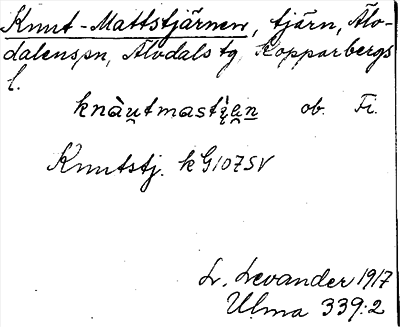 Knut-Mattstjärnen, tjärn, Älv-
dalens sn, Älvdals tg, Kopparbergs
l.
knàutmastjạn ob. Fi.
Knutstj. k G107SV
L. Levander 1917
Ulma 339:2